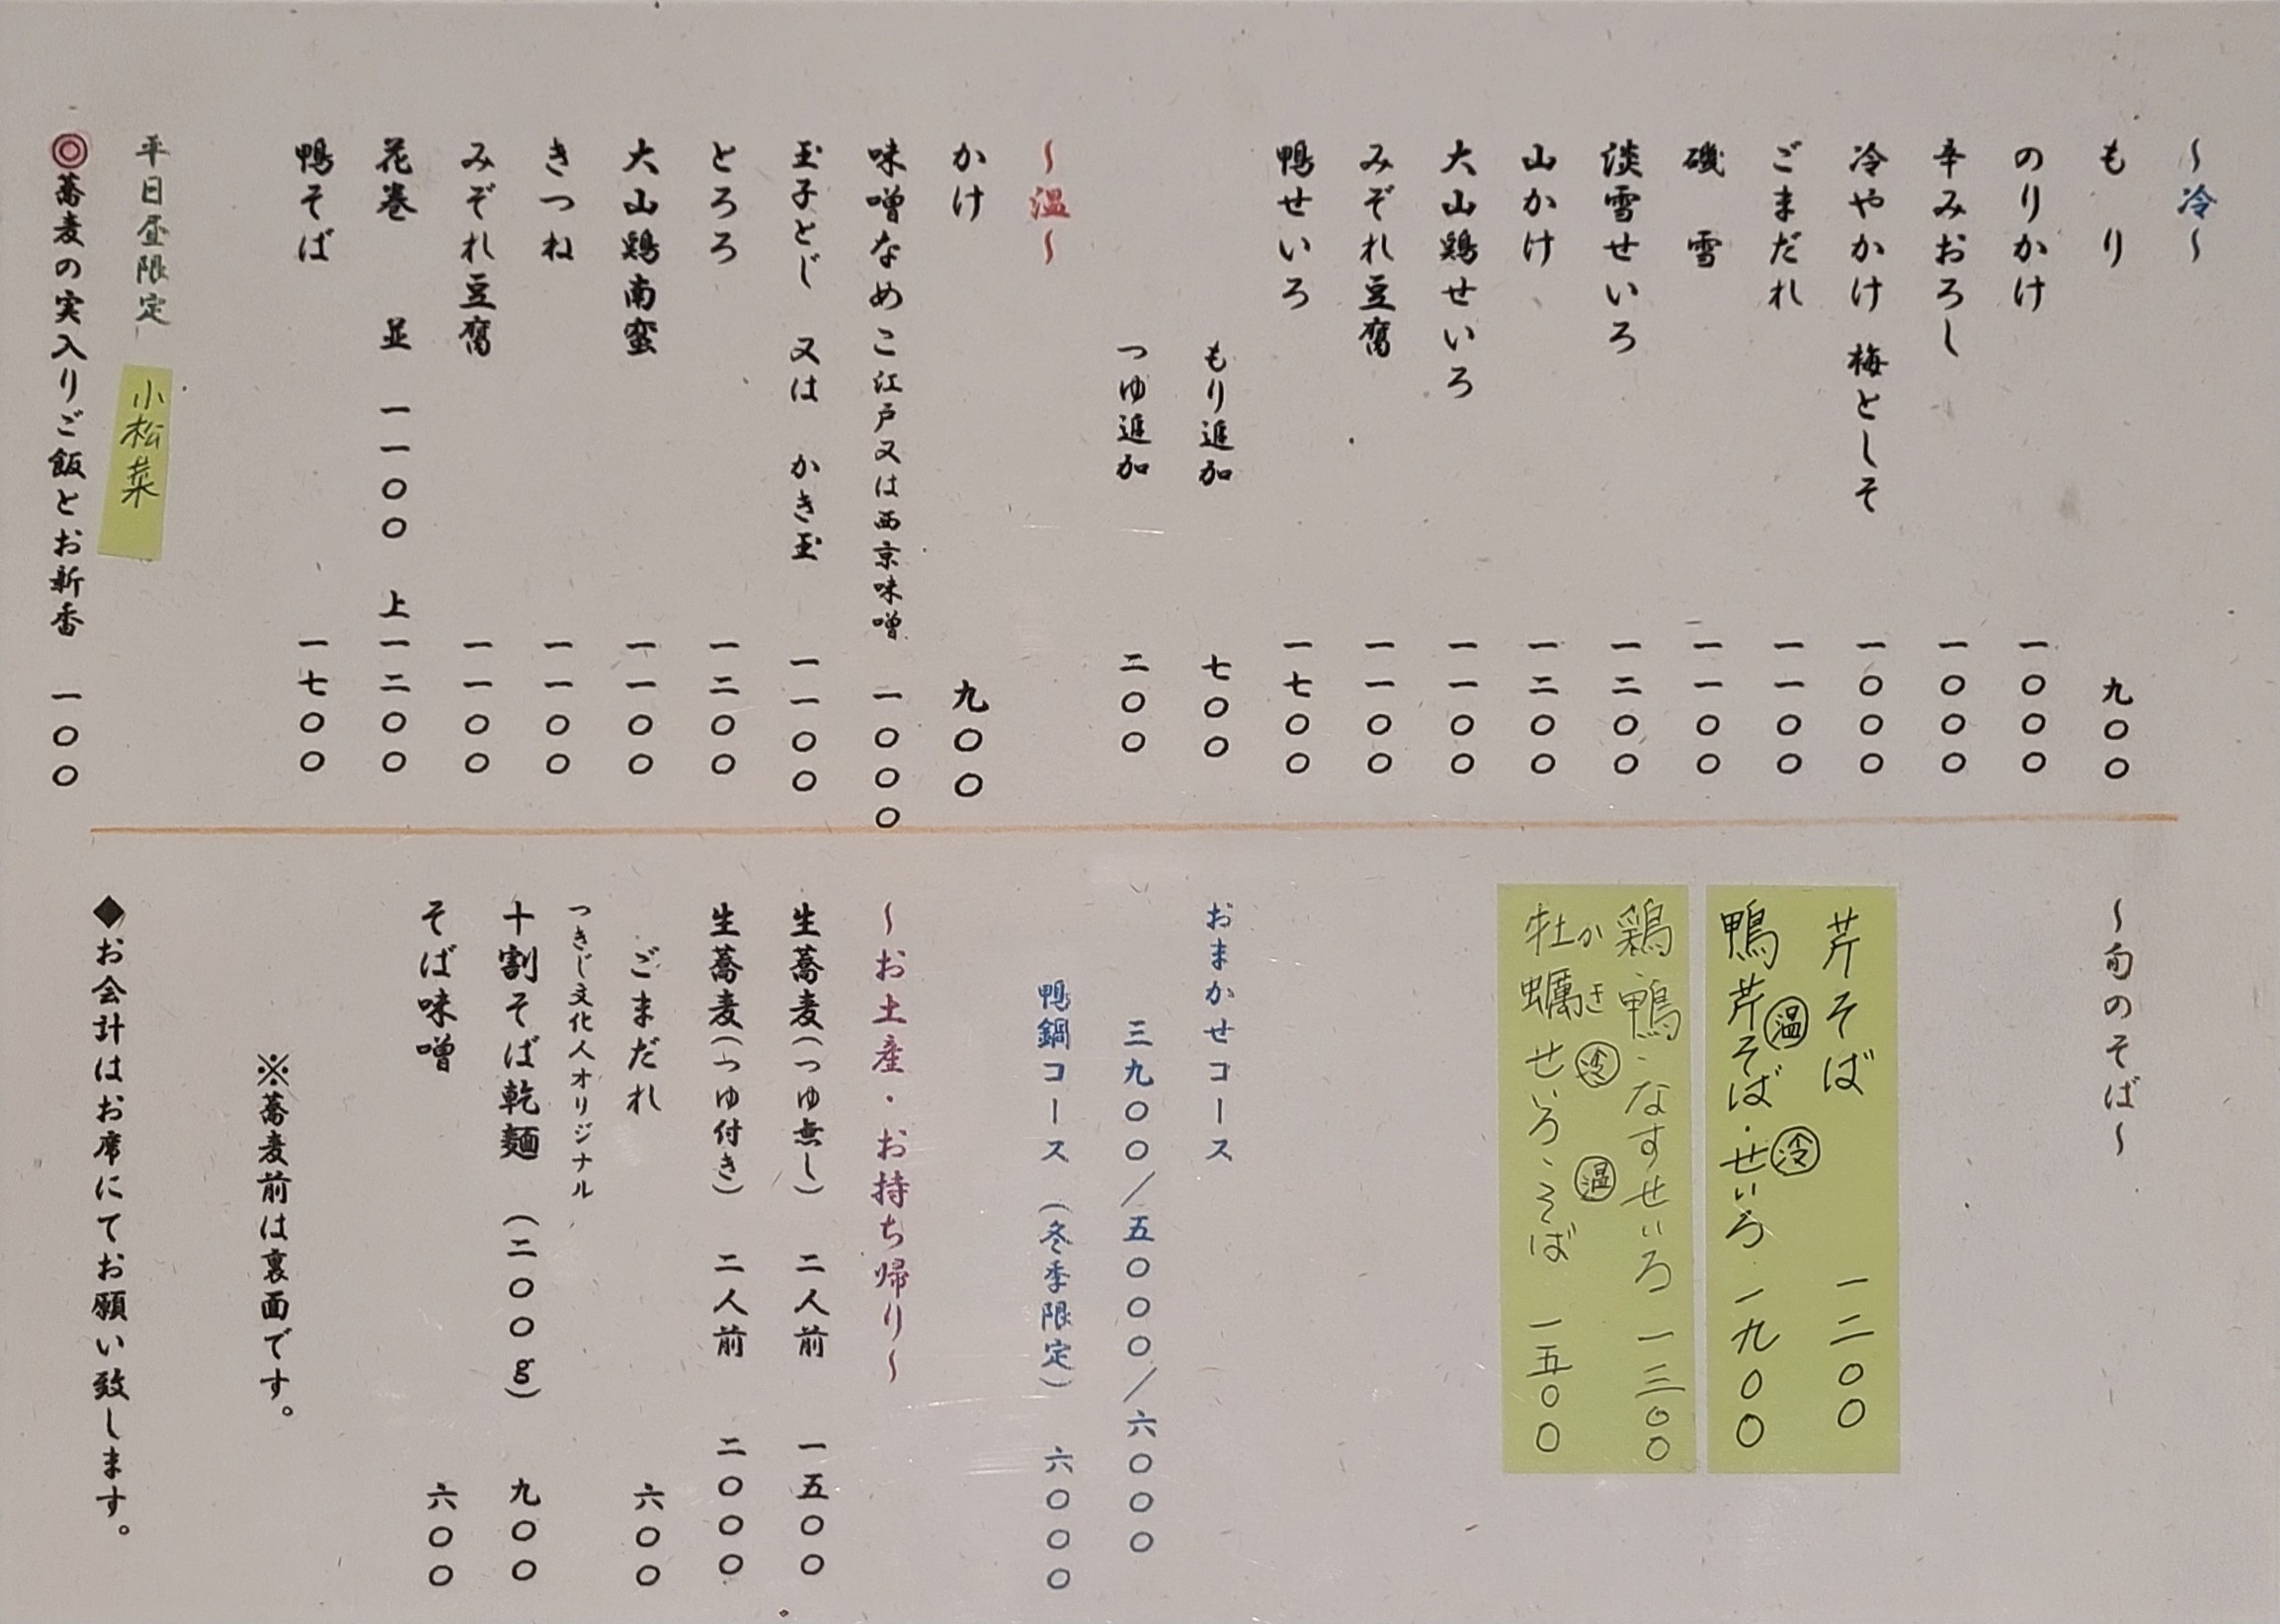 ～冷～
もり 九〇〇
のりかけ 一〇〇〇
辛みおろし 一〇〇〇
冷やかけ 梅としそ 一〇〇〇
ごまだれ 一一〇〇
磯雪 一一〇〇
淡雪せいろ 一二〇〇
山かけ 一二〇〇
大山鶏せいろ 一一〇〇
みぞれ豆腐 一一〇〇
鴨せいろ 一七〇〇
もり追加 七〇〇
つゆ追加 二〇〇
～温～
かけ 九〇〇
味噌なめこ 江戸又は西京味噌 一〇〇〇
玉子とじ 又は かき玉 一一〇〇
とろろ 一二〇〇
大山鶏南蛮 一一〇〇
きつね 一一〇〇
みぞれ豆腐 一一〇〇
花巻 並 一一〇〇 上 一二〇〇
鴨そば 一七〇〇
平日昼限定 小松菜
◎蕎麦の実入りご飯とお新香 一〇〇
～旬のそば～
芹そば 一二〇〇
温 冷
鴨芹そば・せいろ 一九〇〇
鶏、鴨、なすせいろ 一三〇〇
かき 冷 温
牡蠣せいろ、そば 一五〇〇
おまかせコース
三九〇〇/五〇〇〇/六〇〇〇
鴨鍋コース (冬季限定) 六〇〇〇
～お土産・お持ち帰り～
生蕎麦(つゆ無し) 二人前 一五〇〇
生蕎麦(つゆ付き) 二人前 二〇〇〇
ごまだれ 六〇〇
つきじ文化人オリジナル
十割そば乾麺 (二〇〇g) 九〇〇
そば味噌 六〇〇
※蕎麦前は裏面です。
◆お会計はお席にてお願い致します。